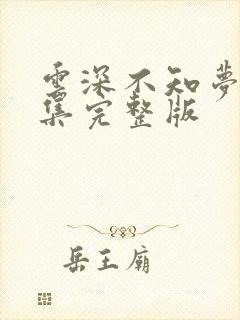 雲深不知夢
集完整版
岳王廟